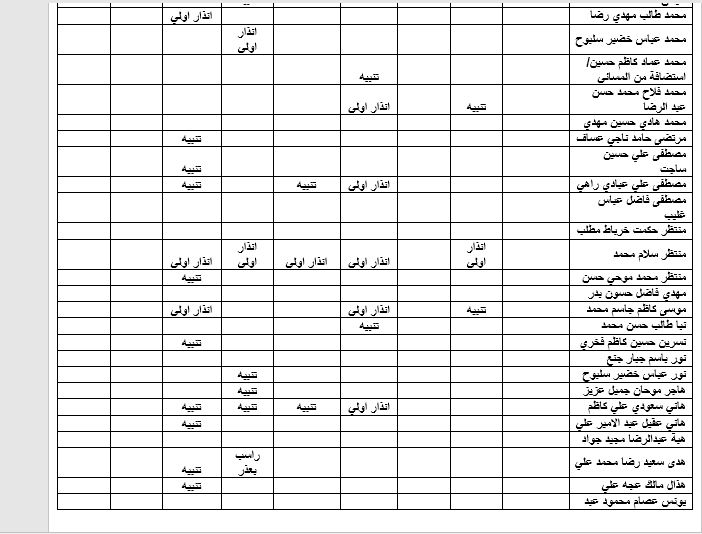 محمد طالب مهدي رضا انذار اولي
محمد عباس خضير سلبوح انذار اولي
محمد عماد كاظم حسين/ استضافة من المسائي تنبيه
محمد فلاح محمد حسن عبد الرضا تنبيه انذار اولي
محمد هادي حسين مهدي
مرتضى حامد ناجي عساف تنبيه
مصطفى علي حسين ساجت تنبيه
مصطفى علي عبادي راهي انذار اولي تنبيه تنبيه
مصطفى فاضل عباس غليب
منتظر حكمت خرباط مطلب
منتظر سلام محمد انذار اولي انذار اولي انذار اولي انذار اولي انذار اولي
منتظر محمد موحي حسن تنبيه
مهدي فاضل حسون بدر
موسى كاظم جاسم محمد تنبيه انذار اولي انذار اولي
نبا طالب حسن محمد تنبيه
نسرين حسين كاظم فخري تنبيه
نور باسم جبار جنع
نور عباس خضير سلبوح تنبيه
هاجر موحان جميل عزيز تنبيه
هاني سعودي علي كاظم انذار اولي تنبيه تنبيه تنبيه
هاني عقيل عبد الامير علي تنبيه
هبة عبدالرضا مجيد جواد
هدى سعيد رضا محمد علي راسب بعذر تنبيه
هذال مالك عجه علي تنبيه
يونس عصام محمود عبد